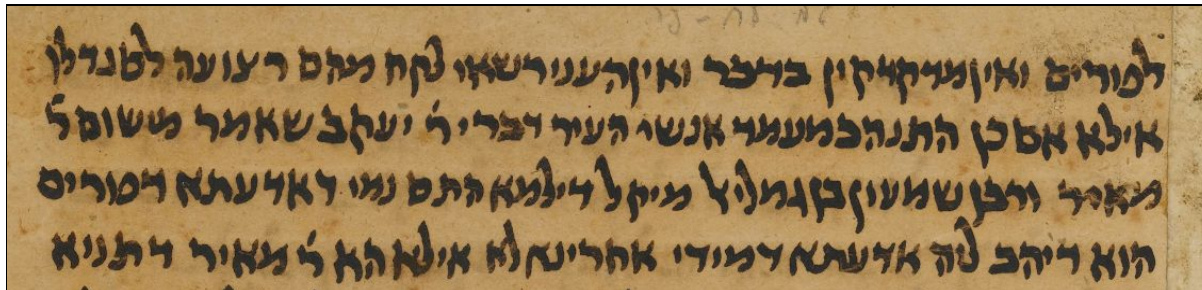 לפורים ואין מדקדקין בדבר ואין העני רשאי לקח מהם רצועה לסנדלו
אילא אם כן התנה במעמד אנשי העיר דברי ר׳ יעקב שאמר משום ר׳
מאיר ורבן שמעון בן גמליל מיקל דילמא התם נמי דאדעתא דפורים
הוא דיהב ליה אדעתא דמידי אחרינא לא אילא הא ר׳ מאיר דתניא